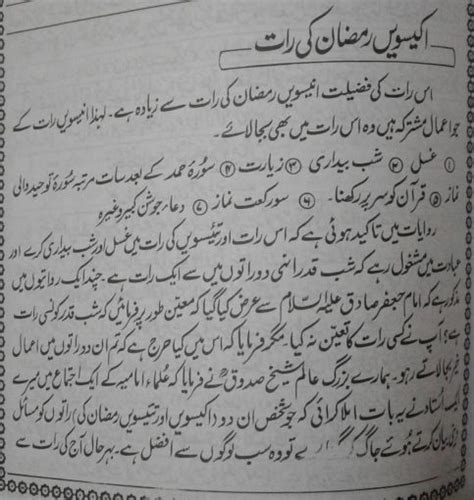 اکیسویں رمضان کی رات
اس رات کی فضیلت انیسویں رمضان کی رات سے زیادہ ہے۔ لہذا انیسویں رات کے
جو اعمال مشترکہ ہیں وہ اس رات میں بھی بجالائے۔
① غسل ② شب بیداری ③ زیارت ④ سورۂ حمد کے بعد سات مرتبہ سورۂ توحید والی
نماز ⑤ قرآن کو سر پر رکھنا۔ ⑥ سو رکعت نماز ⑦ دعاء جوشن کبیر وغیرہ
روایات میں تاکید ہوئی ہے کہ اس رات اور تیئسویں کی رات میں غسل اور شب بیداری کرے اور
عبادت میں مشغول رہے کہ شب قدر انہی دو راتوں میں سے ایک رات ہے۔ چند ایک روایتوں میں
مذکور ہے کہ امام جعفر صادق علیہ السلام سے عرض کیا گیا کہ معین طور پر فرمائیں کہ شب قدر کونسی رات
ہے؟ آپ نے کسی رات کا تعین نہ کیا۔ مگر فرمایا کہ اس میں کیا حرج ہے کہ تم ان دو راتوں میں اعمال
خیر بجا لاتے رہو۔ ہمارے بزرگ عالم شیخ صدوقؒ نے فرمایا کہ علماء امامیہ کے ایک اجتماع میں میرے
ایک استاد نے یہ بات املا کرائی کہ جو شخص ان دو (اکیسویں اور تیئسویں رمضان کی) راتوں کو مسائل
بیان کرتے ہوئے جاگ کر تو وہ سب لوگوں سے افضل ہے۔ بہرحال آج کی رات سے